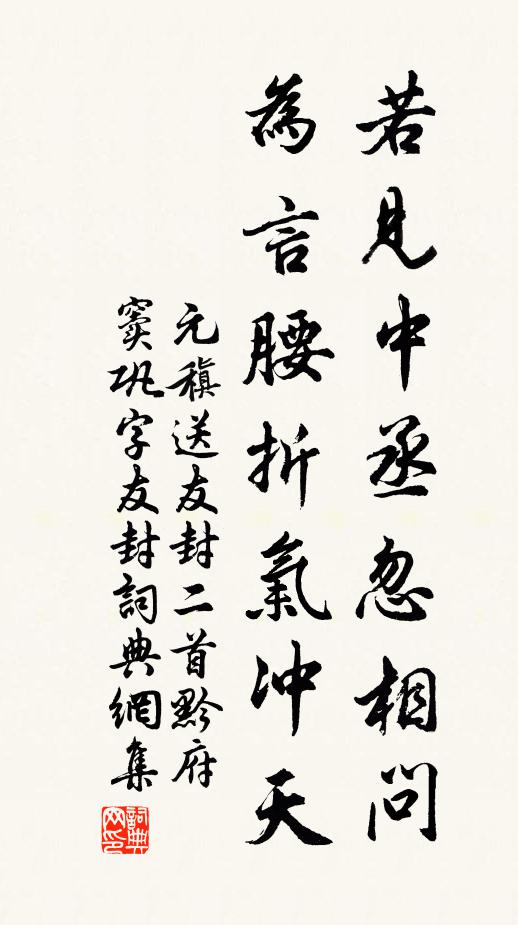 若見中丞忽相問
為言腰折氣沖天
元稹送友封二首黔府
竇巩字友封詞典網集
詞典网印